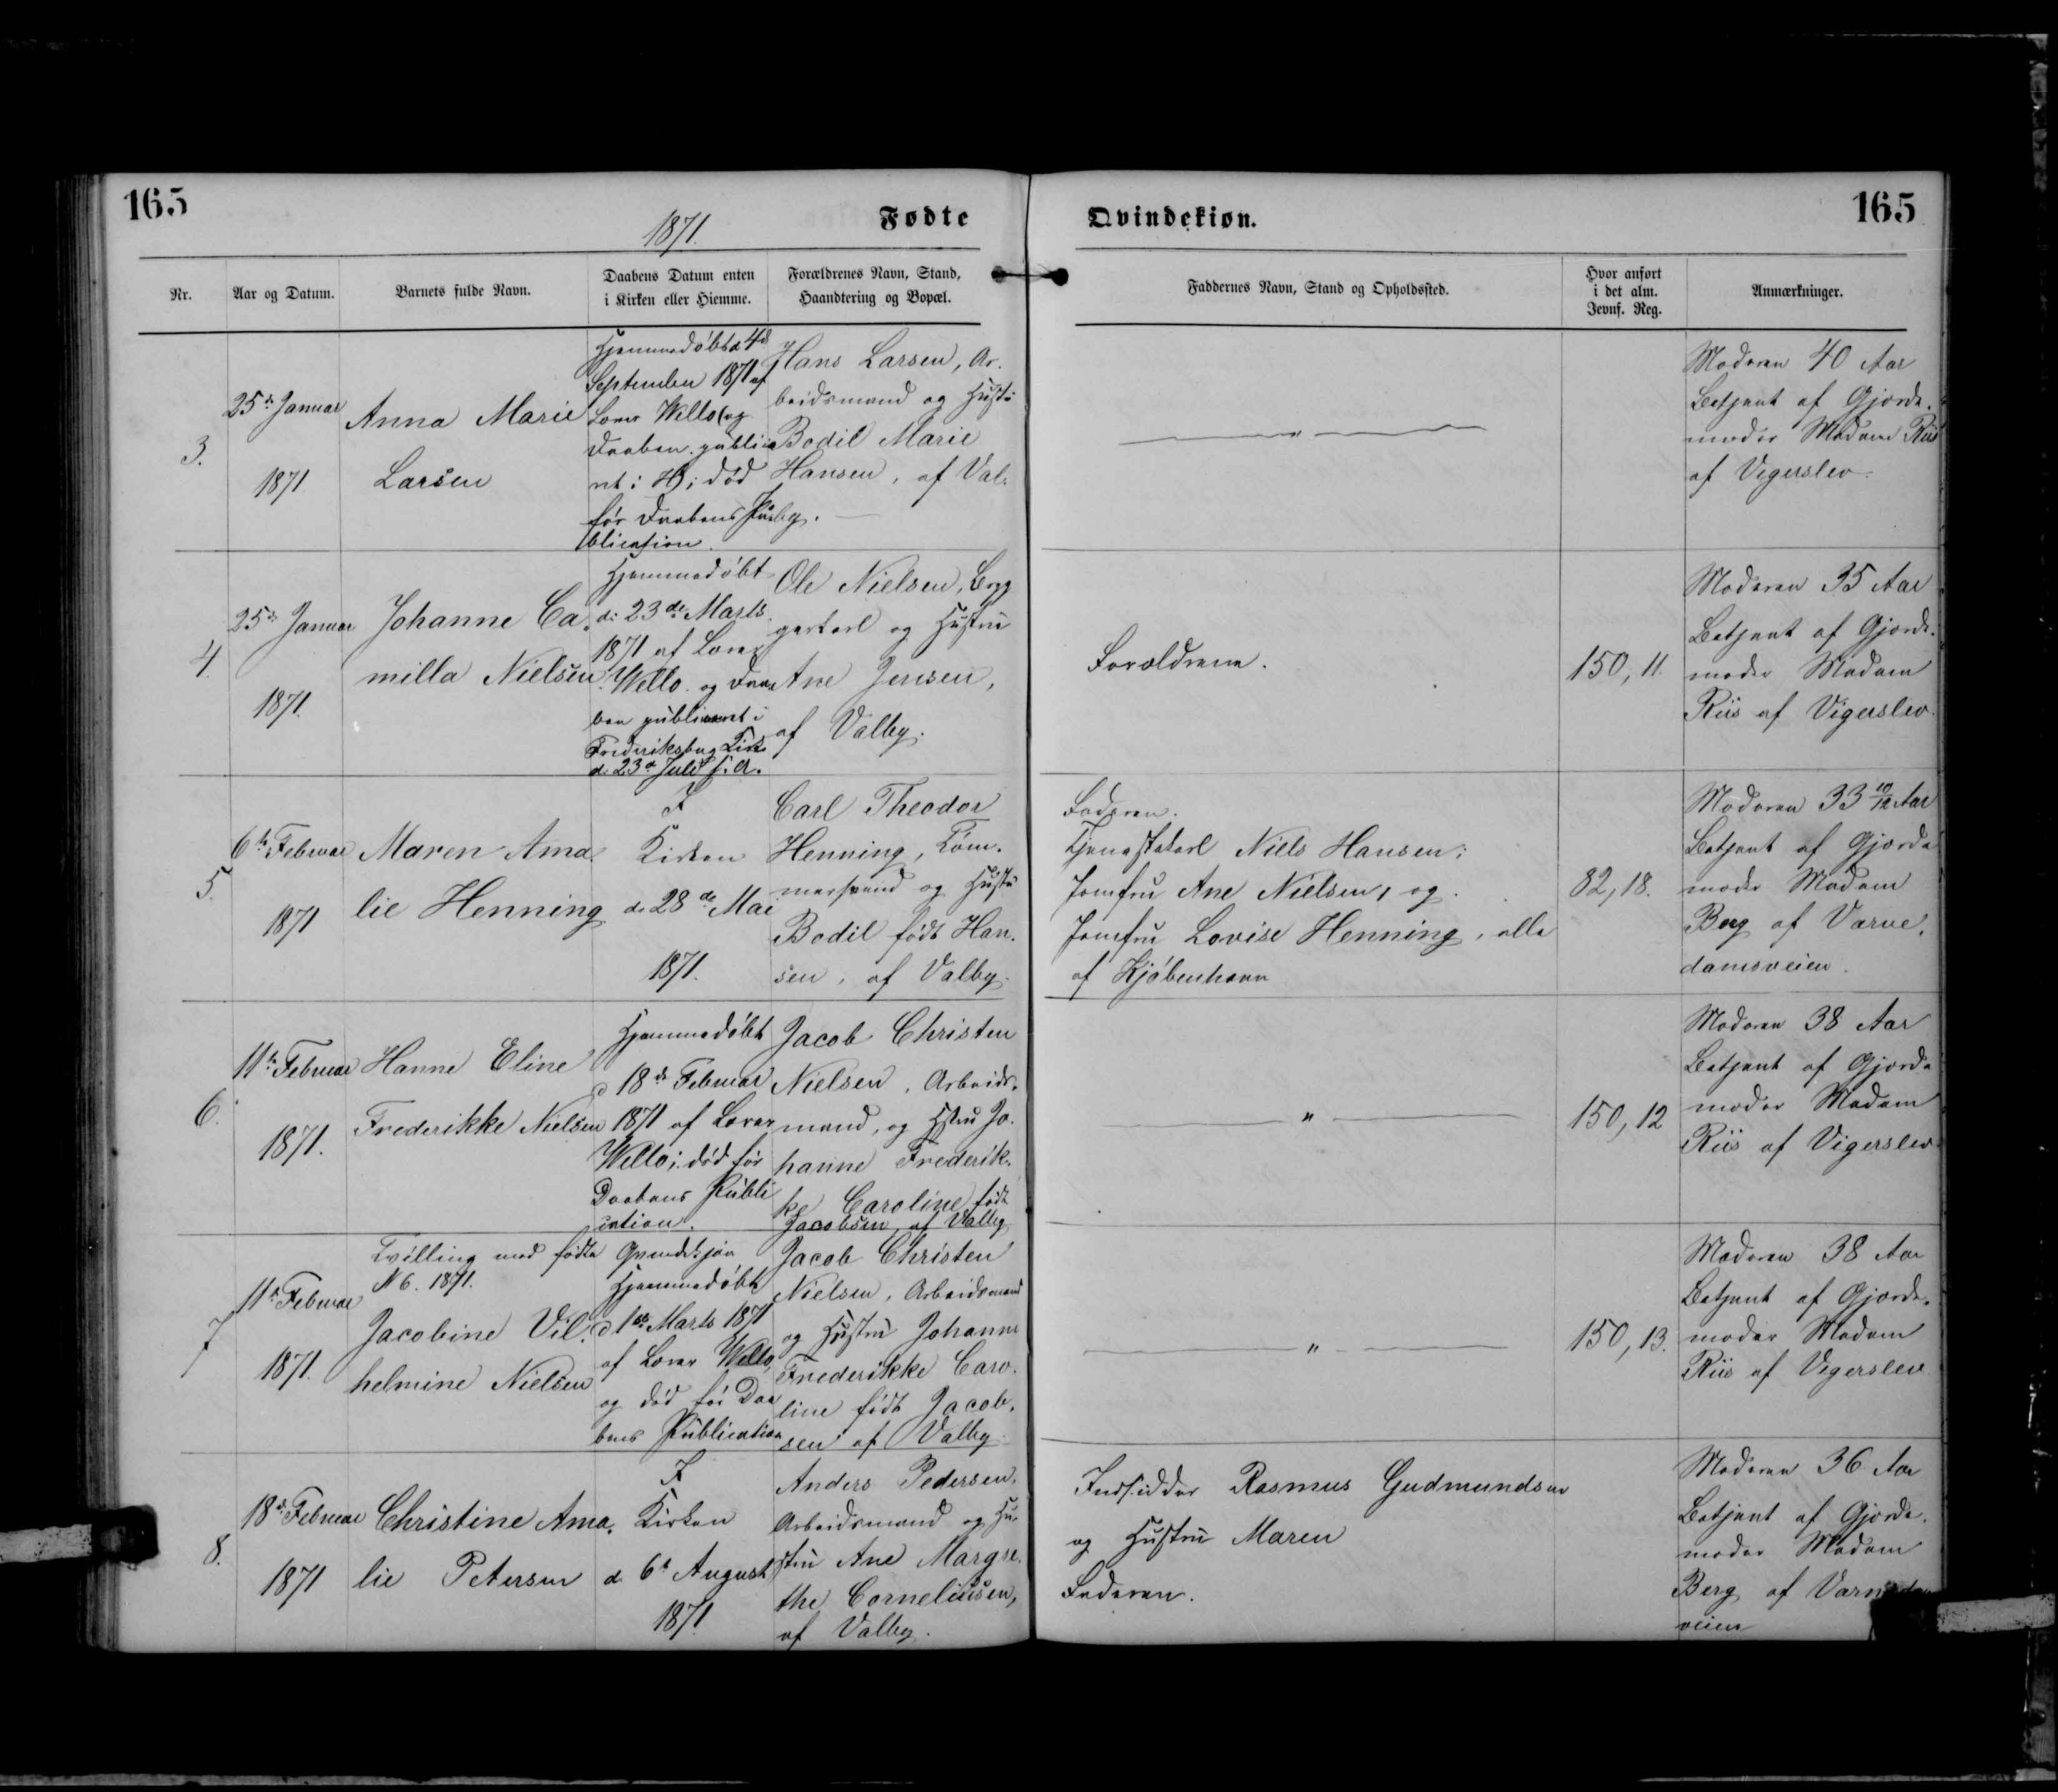 165
1871.
Fødte
Qvindekiøn.
165
Nr.
Aar og Datum.
Barnets fulde Navn.
Daabens Datum enten
i Kirken eller Hiemme.
Forældrenes Navn, Stand,
Haandtering og Bopæl.
Faddernes Navn, Stand og Opholdssted.
Hvor anført
i det alm.
Jevnf. Reg.
Anmærkninger.
3.
25de Januar
1871
Anna Marie
Larsen
Hjemmedøbt d 4de
September 1871 af
Lærer Wello (og
Daaben publice
ret i død
før Daabens Pu
blication.
Hans Larsen, Ar-
beidsmand og Hustru
Bodil Marie
Hansen, af Val-
by.
Moderen 40 Aar
Betjent af Gjorde-
moder Madam Riis
af Vigerslev.
4.
25de Januar
1871.
Johanne Ca-
milla Nielsen
Hjemmedøbt
d: 23de Marts
1871 af Lærer
Wello og Daa
ben publiceret i
Frederiksberg Kirke
d: 23de Juli s. A.
Ole Nielsen, Bryg
gerkarl og Hustru
Ane Jensen,
af Valby.
Forældrene.
150, 11.
Moderen 35 Aar
Betjent af Gjorde-
moder Madam
Riis af Vigerslev.
5.
6te Februar
1871
Maren Ama-
lie Henning
I
Kirken
d. 28de Mai
1871.
Carl Theodor
Henning, Tøm-
mersvend og Hustru
Bodil født Han-
sen, af Valby.
Faderen.
Tjenestekarl Niels Hansen;
Jomfru Ane Nielsen, og
Jomfru Lovise Henning, alle
af Kjøbenhavn
82, 18.
Moderen 33 10/12 Aar
Betjent af Gjorde
moder Madam
Berg af Varne-
damsveien.
6.
11te Februar
1871.
Hanne Eline
Frederikke Nielsen
Hjemmedøbt
d 18de Februar
1871 af Lærer
Wello; død før
Daabens Publi
cation.
Jacob Christen
Nielsen, Arbeids-
mand, og Hstru Jo-
hanne Frederik-
ke Caroline født
Jacobsen, af Valby
"
150, 12
Moderen 38 Aar
Betjent af Gjorde
moder Madam
Riis af Vigerslev.
7
11te Februar
1871.
Tvilling med fødte Qvindekjøn
N 6. 1871.
Jacobine Vil-
helmine Nielsen
Hjemmedøbt
d 1ste Marts 1871
af Lærer Wello,
og død før Daa
bens Publication
Jacob Christen
Nielsen, Arbeidsmand
og Hustru Johanne
Frederikke Caro-
line født Jacob-
sen af Valby
"
150, 13.
Moderen 38 Aar
Betjent af Gjorde-
moder Madam
Riis af Vigerslev
8.
18de Februar
1871
Christine Ama-
lie Petersen
I
Kirken
d. 6te August
1871
Anders Pedersen,
Arbeidsmand og Hu-
stru Ane Margre-
the Corneliussen,
af Valby.
Indsidder Rasmus Gudmundsen
og Hustru Maren
Faderen.
Moderen 36 Aar
Betjent af Gjorde-
moder Madam
Berg af
veien